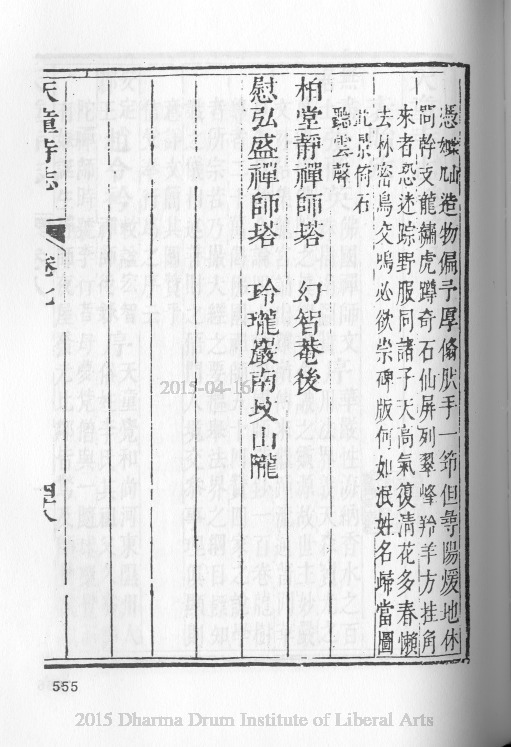 造物偏予厚翛肰手一笻但尋陽煖地休
問幹支龍繡虎蹲奇石仙屏列翠峰羚羊方挂角
來者恐迷踪野服同諸子天高氣復清花多春懶
去林密鳥交鳴必欲崇碑版何如泯姓名歸當圖
此景倚石
聽雲聲
柏堂靜禪師塔　幻智菴後
慰弘盛禪師塔　玲瓏巖南坟山隴
天童寺志　卷七　四十八
555
2015-04-16
2015 Dharma Drum Institute of Liberal Arts